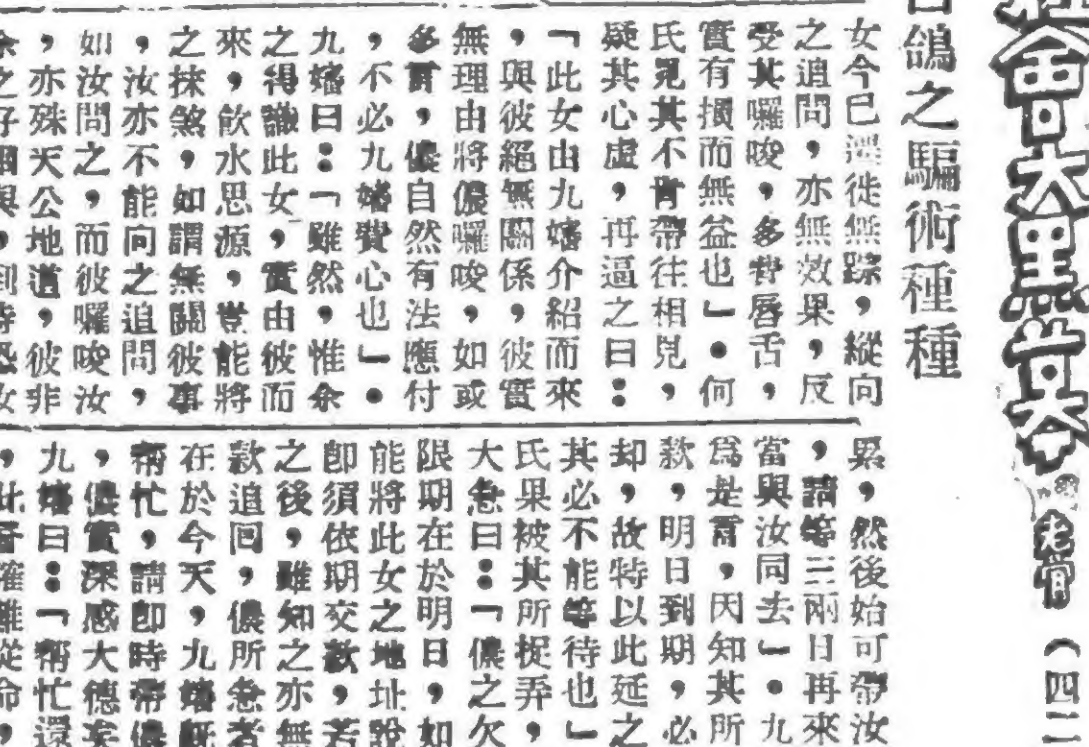 會大黑幕 老骨 (四二
鴿之騙術種種
女今已遷徙無踪,縱向
之追問,亦無效果,反
受其囉唆,多費唇舌,
實有損而無益也」。何
氏見其不肯帶往相見,
疑其心虛,再逼之曰:
「此女由九嬸介紹而來
,與彼絕無關係,彼實
無理由將儂囉唆,如或
多言,儂自然有法應付
,不必九嬸費心也」。
九嬸曰:「雖然,惟余
之得識此女,實由彼而
來,飲水思源,豈能將
之抹煞,如謂無關彼事
,汝亦不能向之追問,
如汝問之,而彼囉唆汝
,亦殊天公地道,彼非
累,然後始可帶汝
,請等三兩日再來
當與汝同去」。九
爲是言,因知其所
欵,明日到期,必
却,故特以此延之
其必不能等待也」
氏果被其所捉弄,
大急曰:「儂之欠
限期在於明日,如
能將此女之地址說
即須依期交欵,若
之後,雖知之亦無
欵追回,儂所急者
在於今天,九嬸既
幇忙,請即時帶儂
,儂實深感大德矣
九嬸曰:「幇忙還
確難從命,